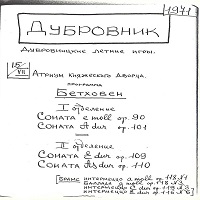 1971
ДУБРОВНИК
ДУБРОВНИЦКИЕ ЛЕТНИЕ ИГРЫ.
15/VII
АТРИУМ КНЯЖЕСКОГО ДВОРЦА.
ПРОГРАММА
БЕТХОВЕН
I отделение
СОНАТА e moll op. 90
СОНАТА A dur op. 101
II отделение
СОНАТА E dur op. 109
СОНАТА As dur op. 110
БРАМС ИНТЕРМЕЦЦО a moll op. 118 №1
БАЛЛАДА g moll op. 118 №3
ИНТЕРМЕЦЦО C dur op. 119 №3
ИНТЕРМЕЦЦО E dur op. 116